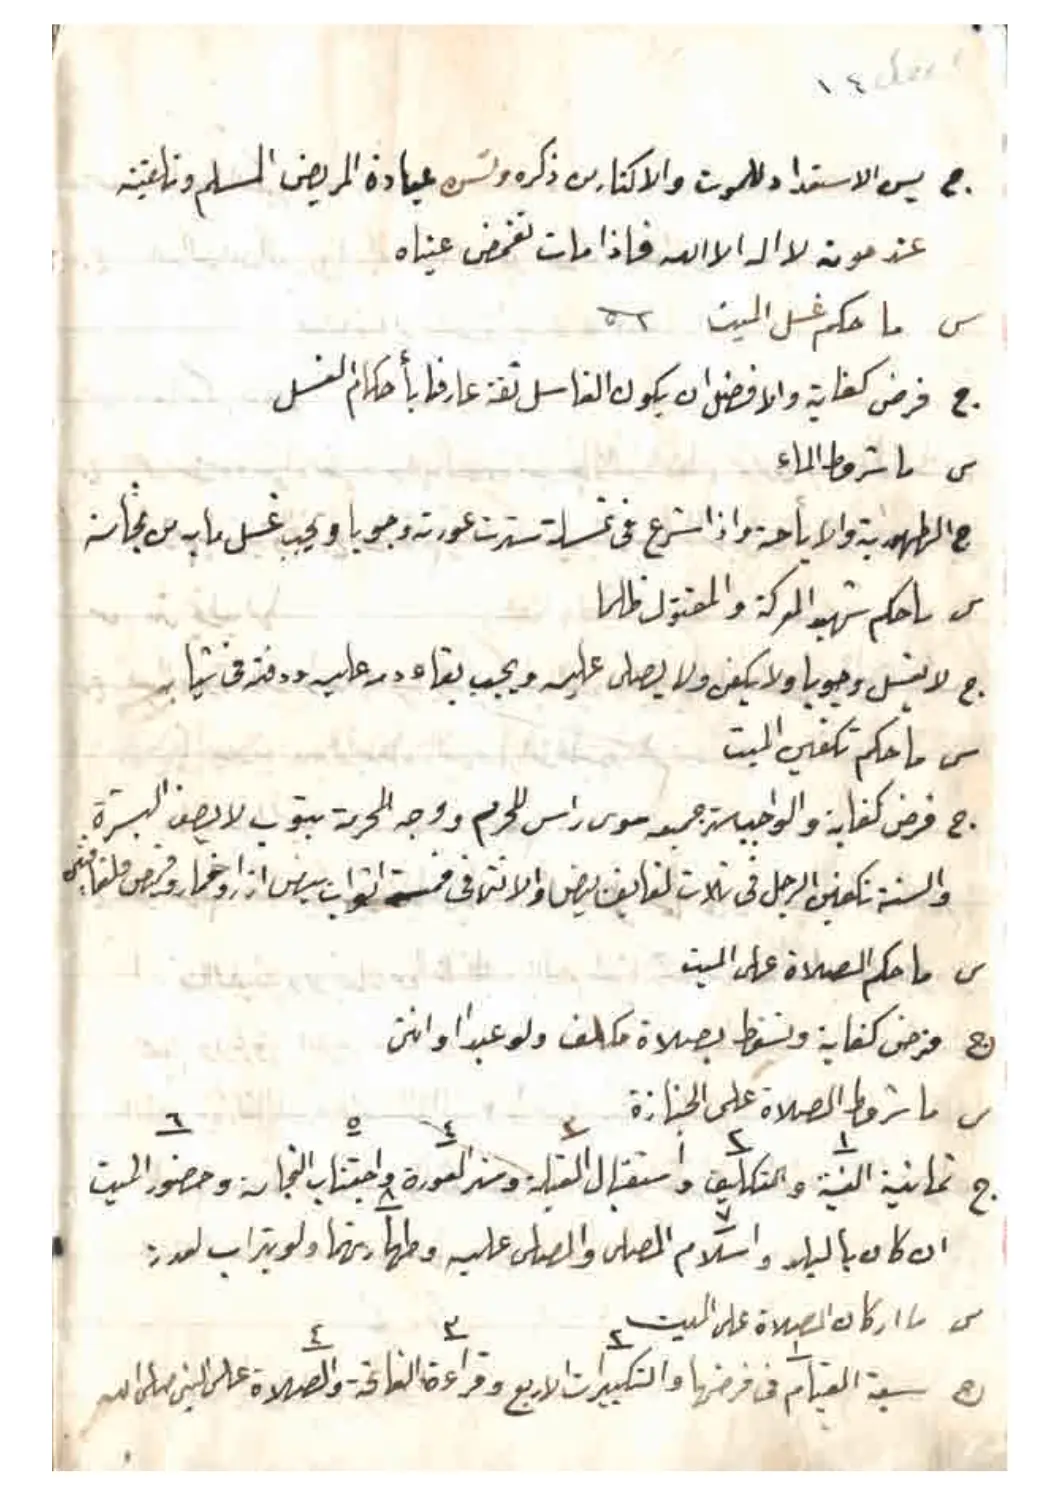 ١٤
ج. يسن الاستعداد للموت والاكثار من ذكره وتسن عيادة المريض المسلم وتلقينه
عند موته لا اله الا الله فاذا مات تغمض عيناه
س ما حكم غسل الميت
ج. فرض كفاية والافضل ان يكون الغاسل ثقة عارفا بأحكام الغسل
س ما شروط الماء
ج الطهورية والاباحة واذا شرع في غسله سترت عورته وجوبا ويجب غسل ما به من نجاسة
س ما حكم شهيد المعركة والمقتول ظلما
ج. لا يغسل وجوبا ولا يكفن ولا يصلى عليه ويجب بقاء دمه عليه ودفنه في ثيابه
س ما حكم تكفين الميت
ج. فرض كفاية والواجب ستر جميعه سوى راس المحرم ووجه المحرمة بثوب لا يصف البشرة
والسنة تكفين الرجل في ثلاث لفايف بيض والانثى في خمسة اثواب بيض ازار وخمار وقميص ولفافتين
س ما حكم الصلاة على الميت
ج فرض كفاية وتسقط بصلاة مكلف ولو عبدا او انثى
س ما شروط الصلاة على الجنازة
ج. ثمانية النية ١ والتكليف ٢ واستقبال القبلة ٣ وستر العورة ٤ واجتناب النجاسة ٥ وحضور الميت ٦
ان كان بالبلد واسلام المصلي والمصلى عليه ٧ وطهارتهما ٨ ولو بتراب لعذر
س ما اركان الصلاة على الميت
ج سبعة القيام ١ في فرضها والتكبيرات ٢ الاربع وقراءة الفاتحة ٣ والصلاة ٤ على النبي صلى الله